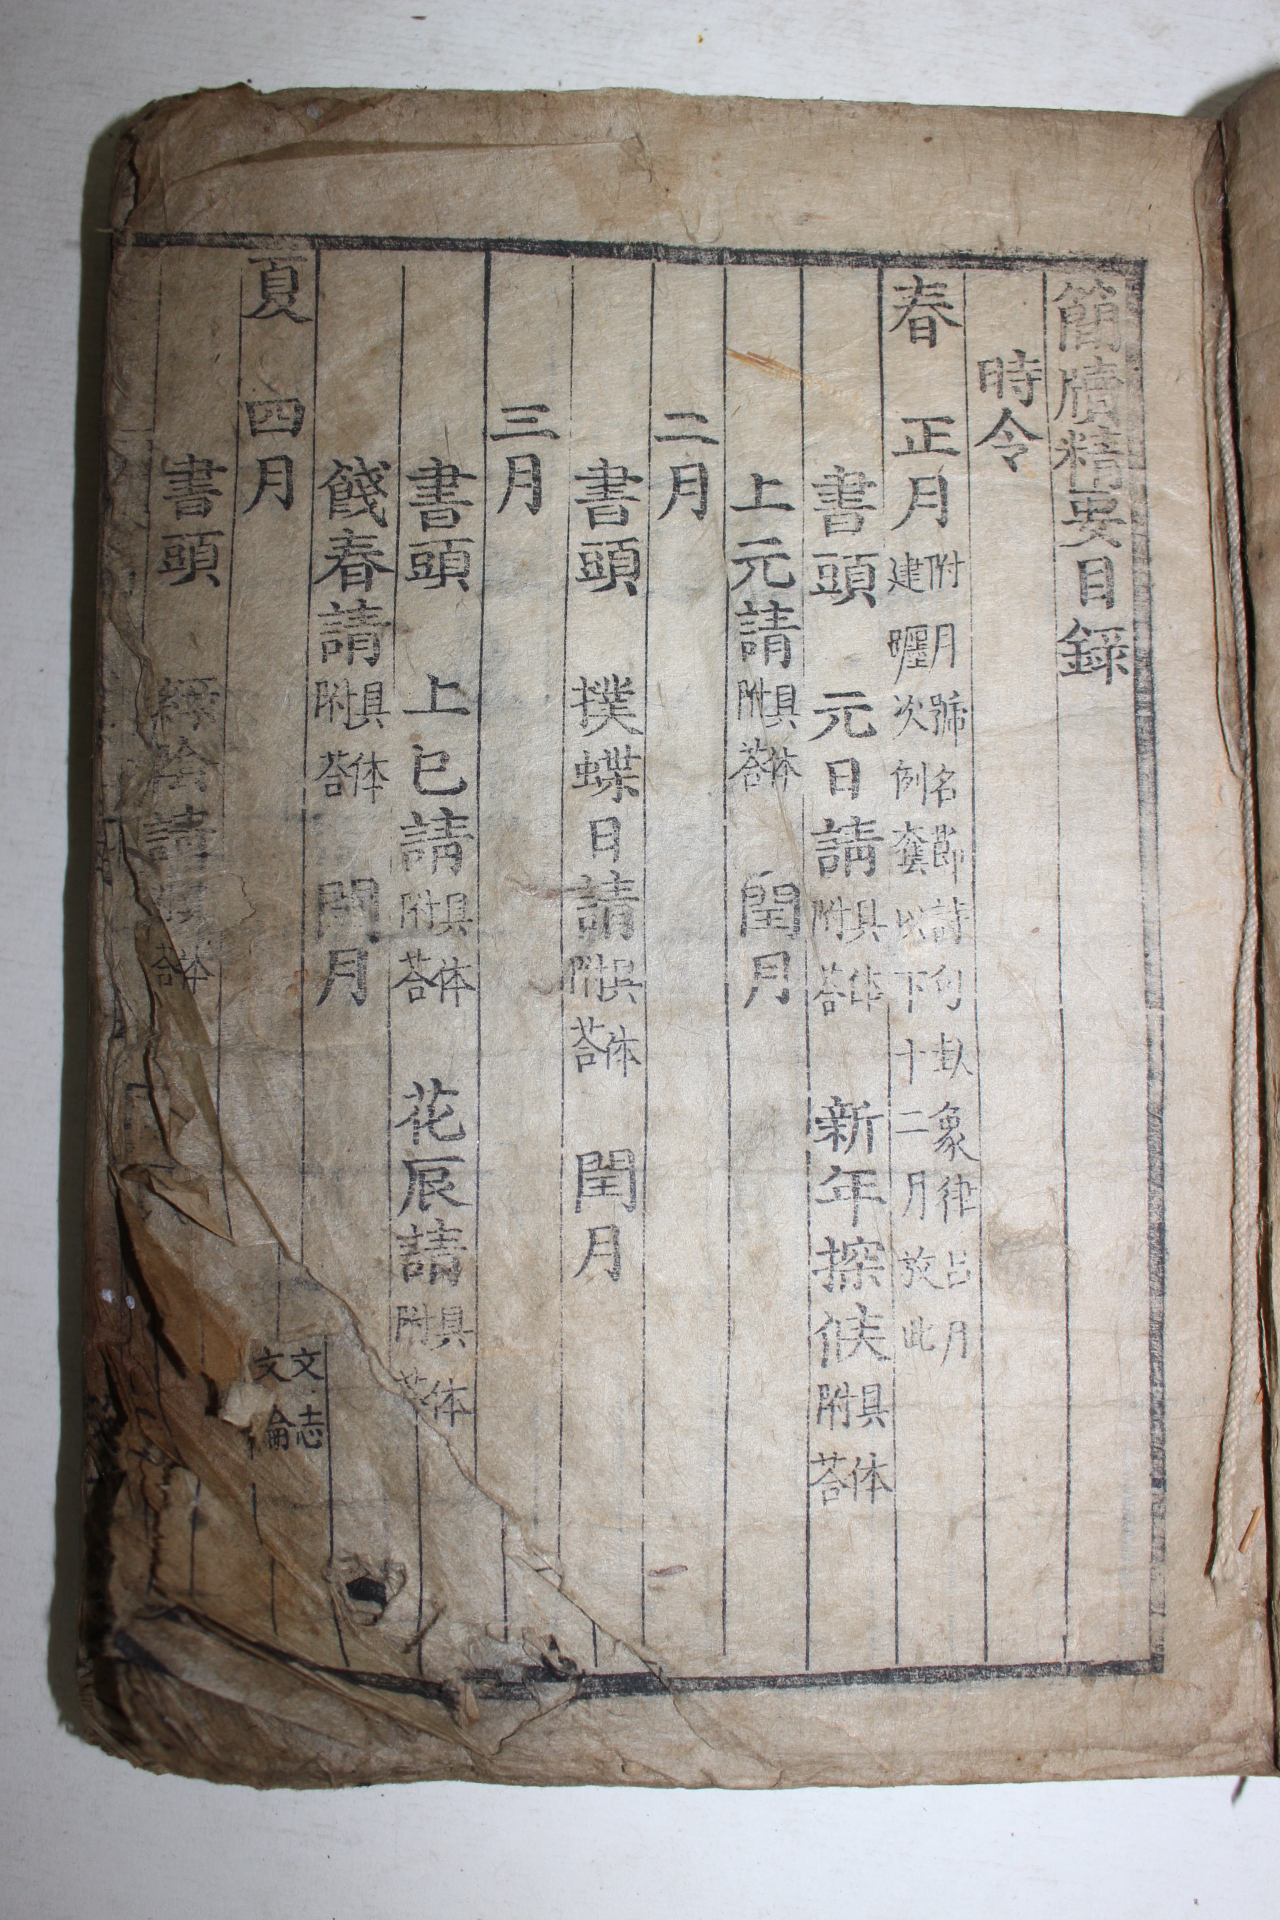 簡牘精要目錄
時令
春 正月 附月號名節詩句卦象律呂月建躔次例彙以下十二月放此
書頭 元日請 附具答体 新年探候 附具答体
上元請 附具答体 閏月
二月
書頭 撲蝶日請 附具答体 閏月
三月
書頭 上巳請 附具答体 花辰請 附具答体
餞春請 附具答体 閏月
夏 四月
書頭 綠陰請 答体
文志
文論